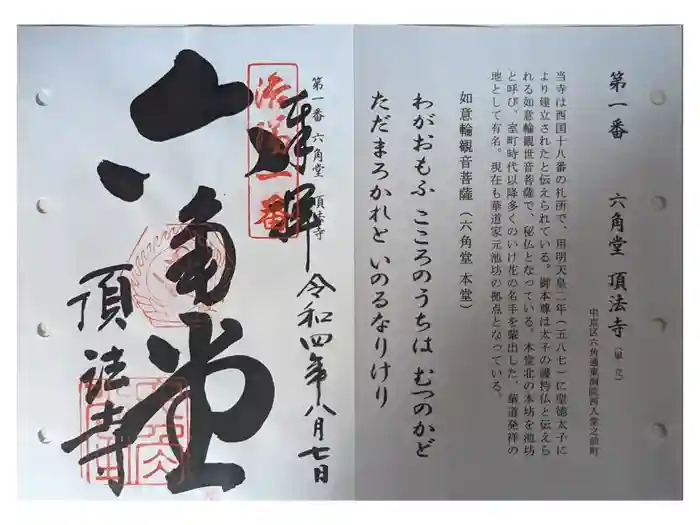 第一番 六角堂 頂法寺（単立）
中京区六角通東洞院西入堂之前町
当寺は西国十八番の札所で、用明天皇二年（五八七）に聖徳太子に
より建立されたと伝えられている。御本尊は太子の護持仏と伝えら
れる如意輪観世音菩薩で、秘仏となっている。本堂北の本坊を池坊
と呼び、室町時代以降多くのいけ花の名手を輩出した、華道発祥の
地として有名。現在も華道家元池坊の拠点となっている。
如意輪観音菩薩（六角堂 本堂）
わがおもふ こころのうちは むつのかど
ただまろかれと いのるなりけり
第一番 六角堂 頂法寺
奉拝
令和四年八月七日
六角堂
頂法寺